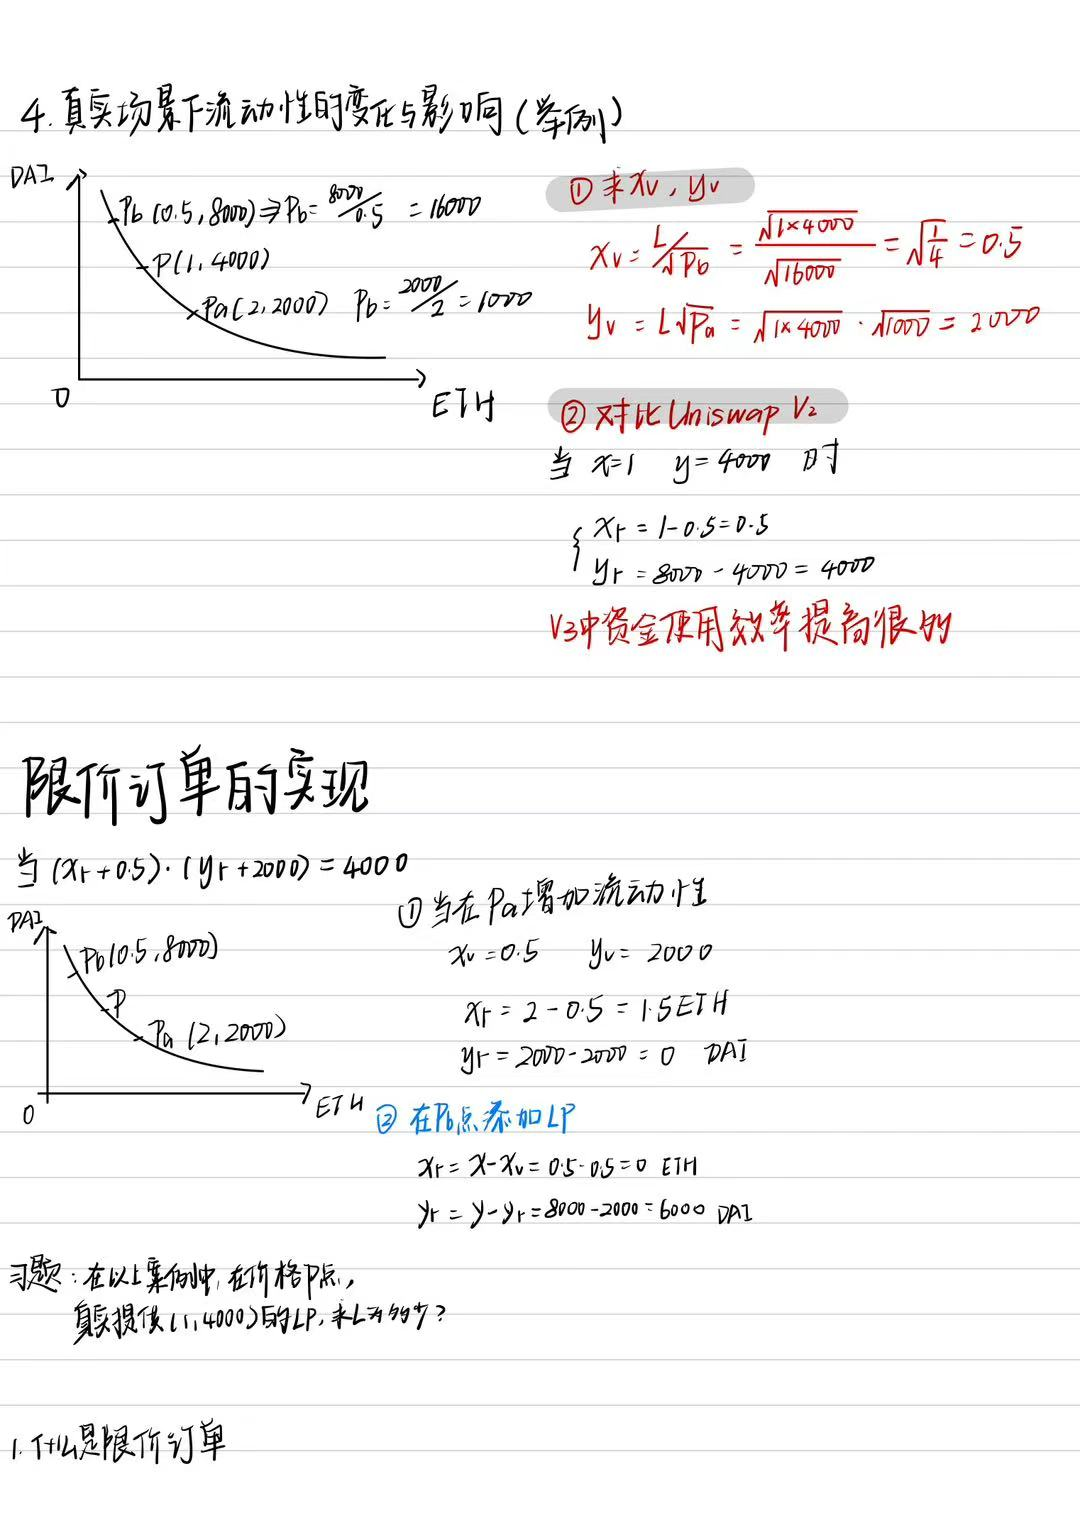 4. 真实场景下流动性的变化与影响(举例)
DAI
Pb (0.5, 8000) ⇒ Pb = 8000/0.5 = 16000
P(1, 4000)
Pa(2, 2000) Pb = 2000/2 = 1000
0
ETH
① 求 Xv, yv
Xv = L/√Pb = √1×4000/√16000 = √1/4 = 0.5
yv = L√Pa = √1×4000 · √1000 = 2000
② 对比 Uniswap V2
当 x=1 y=4000 时
{ Xr = 1-0.5=0.5
yr = 8000 - 4000 = 4000
V3中资金使用效率提高很多
限价订单的实现
当 (Xr+0.5)·(yr+2000) = 4000
DAI
Pb(0.5, 8000)
P
Pa (2, 2000)
0
ETH
① 当在Pa增加流动性
Xv = 0.5 yv = 2000
Xr = 2 - 0.5 = 1.5 ETH
yr = 2000 - 2000 = 0 DAI
② 在Pb点添加LP
Xr = X-Xv = 0.5-0.5 = 0 ETH
yr = y-yr = 8000-2000 = 6000 DAI
习题: 在以上案例中, 在价格P点,
真实提供(1, 4000)的LP, 求L为多少?
1. 什么是限价订单